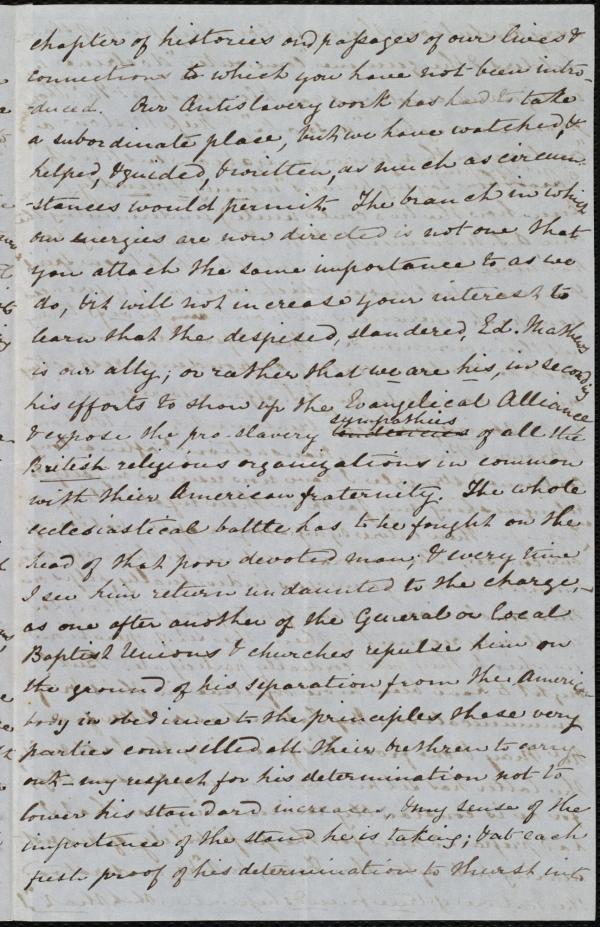 chapter of histories and passages of our lives &
connections to which you have not been intro-
duced. Our Antislavery work has had to take
a subordinate place, but we have watched, &
helped, & guided, & written, as much as circum-
-stances would permit. The branch in which
our energies are now directed is not one that
you attach the same importance to as we
do, bit will not increase your interest to
learn that the despised, slandered, Ed. Mathews
is our ally; or rather that we are his, in seconding
his efforts to show up the Evangelical Alliance
& expose the pro-slavery sympathies tendencies of all the
British religious organizations in common
with their American fraternity. The whole
ecclesiastical battle has to be fought on the
head of that poor devoted man; & every time
I see him return undaunted to the charge,
as one after another of the General or Local
Baptist Unions & churches repulse him on
the ground of his separation from the American
body in obedience to the principles these very
parties counselled all their brethren to carry
out - my respect for his determination not to
lower his standard increases, & my sense of the
importance of the stand he is taking; & at each
fresh proof of his determination to thrust into